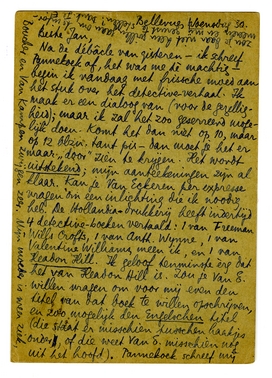 Bellevue, Woensdag 30.
Beste Jan,
Na de débâcle van gisteren — ik schreef
Pannekoek af, het was me te machtig —
begin ik vandaag met frissche moed aan
het stuk over het detective-verhaal. Ik
maak er een dialoog van (voor de gezellig-
heid); maar ik zal het zoo geserreerd moge-
lijk doen. Komt het dan niet op 10, maar
op 12 blzn., tant pis — dan moet je het er
maar "door" zien te krijgen. Het wordt
uitstekend; mijn aanteekeningen zijn al
klaar. Kan je Van Eckeren per expresse
vragen om een inlichting die ik noodig
heb. De Hollandia-drukkerij heeft indertijd
4 detective-boeken vertaald: 1 van Freeman
Wills Crofts, 1 van Anth. Wynne, 1 van
Valentine Williams meen ik, en 1 van
Headon Hill. Ik geloof tenminste erg dat
het van Headon Hill is. Zou je Van E.
willen vragen om voor mij even den
titel van dat boek te willen opschrijven,
en zoo mogelijk den Engelschen titel
(die staat er misschien tusschen haakjes
onder, of die weet Van E. misschien nog
uit het hoofd). Pannekoek schreef mij
Bouws en Van Kampen zwijgen zeer. Mijn moeder is weer ziek,